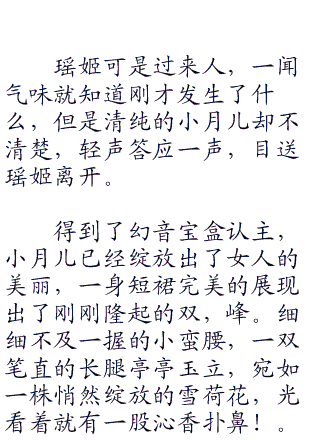 瑶姬可是过来人，一闻
气味就知道刚才发生了什
么，但是清纯的小月儿却不
清楚，轻声答应一声，目送
瑶姬离开。
得到了幻音宝盒认主，
小月儿已经绽放出了女人的
美丽，一身短裙完美的展现
出了刚刚隆起的双，峰。细
细不及一握的小蛮腰，一双
笔直的长腿亭亭玉立，宛如
一株悄然绽放的雪荷花，光
看着就有一股沁香扑鼻！。